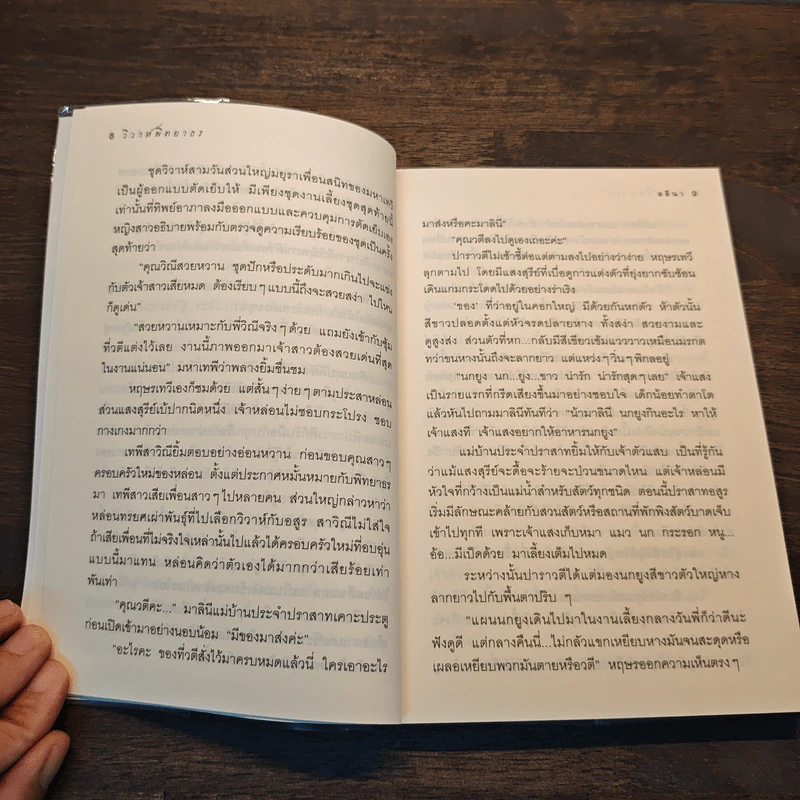 ๖ วิวาห์พิทยาธร
ชุดวิวาห์สามวันส่วนใหญ่มยุราเพื่อนสนิทของมหาเทวี
เป็นผู้ออกแบบตัดเย็บให้ มีเพียงชุดงานเลี้ยงชุดสุดท้ายนี้
เท่านั้นที่ทิพย์อาภาลงมือออกแบบและควบคุมการตัดเย็บเอง
หญิงสาวอธิบายพร้อมกับตรวจดูความเรียบร้อยของชุดเป็นครั้ง
สุดท้ายว่า
“คุณวิณีสวยหวาน ชุดปักหรือประดับมากเกินไปจะแข่ง
กับตัวเจ้าสาวเสียหมด ต้องเรียบๆ แบบนี้ถึงจะสวยสง่า ไปไหน
ก็ดูเด่น”
“สวยหวานเหมาะกับพี่วิณีจริงๆ ด้วย แถมยังเข้ากับซุ้ม
ที่วตีแต่งไว้เลย งานนี้ภาพออกมาเจ้าสาวต้องสวยเด่นที่สุด
ในงานแน่นอน” มหาเทพีว่าพลางยิ้มชื่นชม
หฤษรเทวีเองก็ชมด้วย แต่สั้นๆ ง่ายๆ ตามประสาหล่อน
ส่วนแสงสุรีย์เบ้ปากนิดหนึ่ง เจ้าหล่อนไม่ชอบกระโปรง ชอบ
กางเกงมากกว่า
เทพีสาวิณียิ้มตอบอย่างอ่อนหวาน ก่อนขอบคุณสาวๆ
ครอบครัวใหม่ของหล่อน ตั้งแต่ประกาศหมั้นหมายกับพิทยาธร
มา เทพีสาวเสียเพื่อนสาวๆ ไปหลายคน ส่วนใหญ่กล่าวหาว่า
หล่อนทรยศเผ่าพันธุ์ที่ไปเลือกวิวาห์กับอสูร สาวิณีไม่ใส่ใจ
ถ้าเสียเพื่อนที่ไม่จริงใจเหล่านั้นไปแล้วได้ครอบครัวใหม่ที่อบอุ่น
แบบนี้มาแทน หล่อนคิดว่าตัวเองได้มากกว่าเสียร้อยเท่า
พันเท่า
“คุณวตีคะ...” มาลินีแม่บ้านประจำปราสาทเคาะประตู
ก่อนเปิดเข้ามาอย่างนอบน้อม “มีของมาส่งค่ะ”
“อะไรคะ ของที่วตีสั่งไว้มาครบหมดแล้วนี่ ใครเอาอะไร
อลินา ๗
มาส่งหรือคะมาลินี”
“คุณวตีลงไปดูเองเถอะค่ะ”
ปาราวตีไม่เซ้าซี้ต่อแต่ตามลงไปอย่างว่าง่าย หฤษรเทวี
ลุกตามไป โดยมีแสงสุรีย์ที่เบื่อดูการแต่งตัวที่ยุ่งยากซับซ้อน
เดินแกมกระโดดไปด้วยอย่างร่าเริง
‘ของ’ ที่ว่าอยู่ในคอกใหญ่ มีด้วยกันหกตัว ห้าตัวนั้น
สีขาวปลอดตั้งแต่หัวจรดปลายหาง ทั้งสง่า สวยงามและ
ดูสูงส่ง ส่วนตัวที่หก...กลับมีสีเขียวเข้มแวววาวเหมือนมรกต
ทว่าขนหางนั้นถึงจะลากยาว แต่แหว่งๆ วิ่นๆ พิกลอยู่
“นกยูง นก...ยูง...ขาว น่ารัก น่ารักสุดๆ เลย” เจ้าแสง
เป็นรายแรกที่กรีดเสียงขึ้นมาอย่างชอบใจ เด็กน้อยทำตาโต
แล้วหันไปถามมาลินีทันทีว่า “น้ามาลินี นกยูงกินอะไร หาให้
เจ้าแสงที เจ้าแสงอยากให้อาหารนกยูง”
แม่บ้านประจำปราสาทยิ้มให้เจ้าตัวแสบ เป็นที่รู้กัน
ว่าแม้แสงสุรีย์จะดื้อจะร้ายจะป่วนขนาดไหน แต่เจ้าหล่อนมี
หัวใจที่กว้างเป็นแม่น้ำสำหรับสัตว์ทุกชนิด ตอนนี้ปราสาทอสูร
เริ่มมีลักษณะคล้ายกับสวนสัตว์หรือสถานที่พักพิงสัตว์บาดเจ็บ
เข้าไปทุกที เพราะเจ้าแสงเก็บหมา แมว นก กระรอก หนู...
อ้อ...มีเป็ดด้วย มาเลี้ยงเต็มไปหมด
ระหว่างนั้นปาราวตีได้แต่มองนกยูงสีขาวตัวใหญ่หาง
ลากยาวไปกับพื้นตาปริบ ๆ
“แผนนกยูงเดินไปมาในงานเลี้ยงกลางวันพี่ก็ว่าดีนะ
ฟังดูดี แต่กลางคืนนี่...ไม่กลัวแขกเหยียบหางมันจนสะดุดหรือ
เผลอเหยียบพวกมันตายหรือวตี” หฤษรออกความเห็นตรงๆ